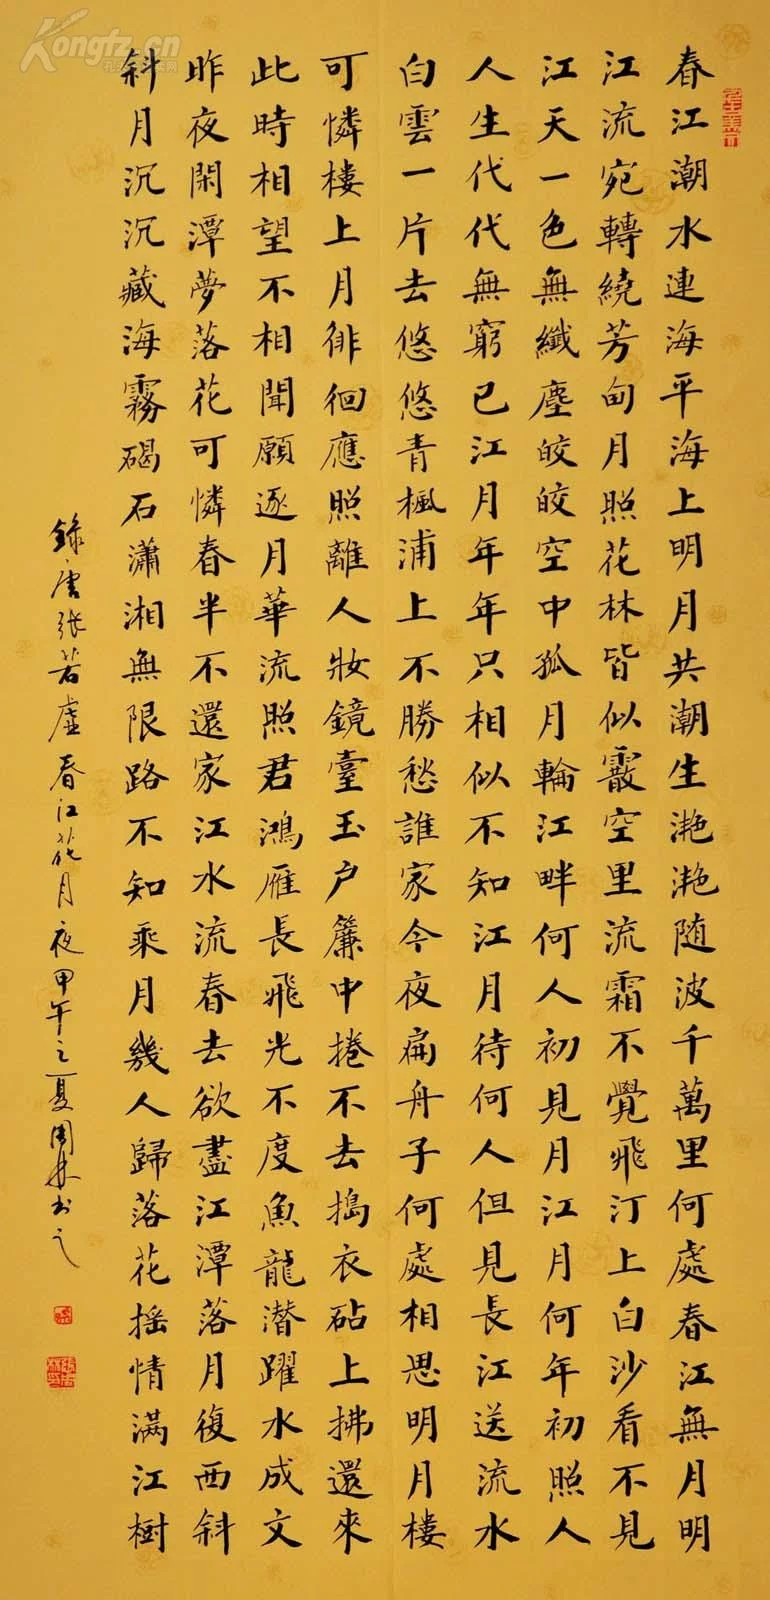 春江潮水連海平海上明月共潮生滟滟随波千萬里何處春江無月明
江流宛轉繞芳甸月照花林皆似霰空里流霜不覺飛汀上白沙看不見
江天一色無纖塵皎皎空中孤月輪江畔何人初見月江月何年初照人
人生代代無窮已江月年年只相似不知江月待何人但見長江送流水
白雲一片去悠悠青楓浦上不勝愁誰家今夜扁舟子何處相思明月樓
可憐樓上月徘徊應照離人妝鏡臺玉户簾中捲不去搗衣砧上拂還來
此時相望不相聞願逐月華流照君鴻雁長飛光不度魚龍潜躍水成文
昨夜閑潭夢落花可憐春半不還家江水流春去欲盡江潭落月復西斜
斜月沉沉藏海霧碣石瀟湘無限路不知乘月幾人歸落花摇情满江樹
錄唐張若虛春江花月夜甲午之夏周林书之
Kongfz.cn